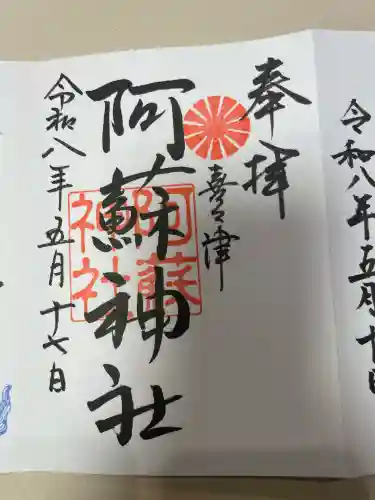 令和八年五月十
奉拝
喜々津
阿蘇神社
阿蘇神社
令和八年五月十七日